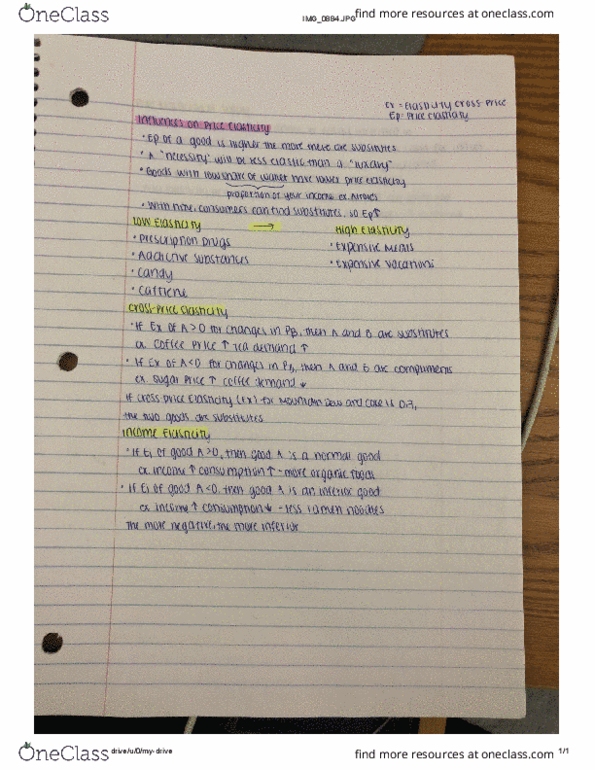 OneClass
IMG_0884.JPG
find more resources at oneclass.com
Ex = Elasticity cross-price
Ep = Price Elasticity
Influences on Price Elasticity
• Ep of a good is higher the more there are substitutes
• A "necessity" will be less elastic than a "luxury"
• Goods with low share of wallet have lower price elasticity
proportion of your income ex.
• With time, consumers can find substitutes, so Ep↑
Low Elasticity → High Elasticity
• Prescription Drugs • Expensive Meals
• Addictive Substances • Expensive Vacations
• Candy
• Caffeine
Cross-Price Elasticity
• If Ex of A>0 for changes in PB, then A and B are substitutes
ex. Coffee Price ↑ tea demand ↑
• If Ex of A<0 for changes in PB, then A and B are compliments
ex. Sugar Price ↑ coffee demand ↓
If cross price elasticity (Ex) for Mountain Dew and Coke is 0.7,
the two goods are substitutes
Income Elasticity
• If Ei of good A>0, then good A is a normal good
ex. income ↑ consumption ↑ - more organic foods
• If Ei of good A<0, then good A is an inferior good
ex. income ↑ consumption ↓ - less ramen noodles
The more negative, the more inferior
OneClass
drive/u/0/my-drive
find more resources at oneclass.com
1/1